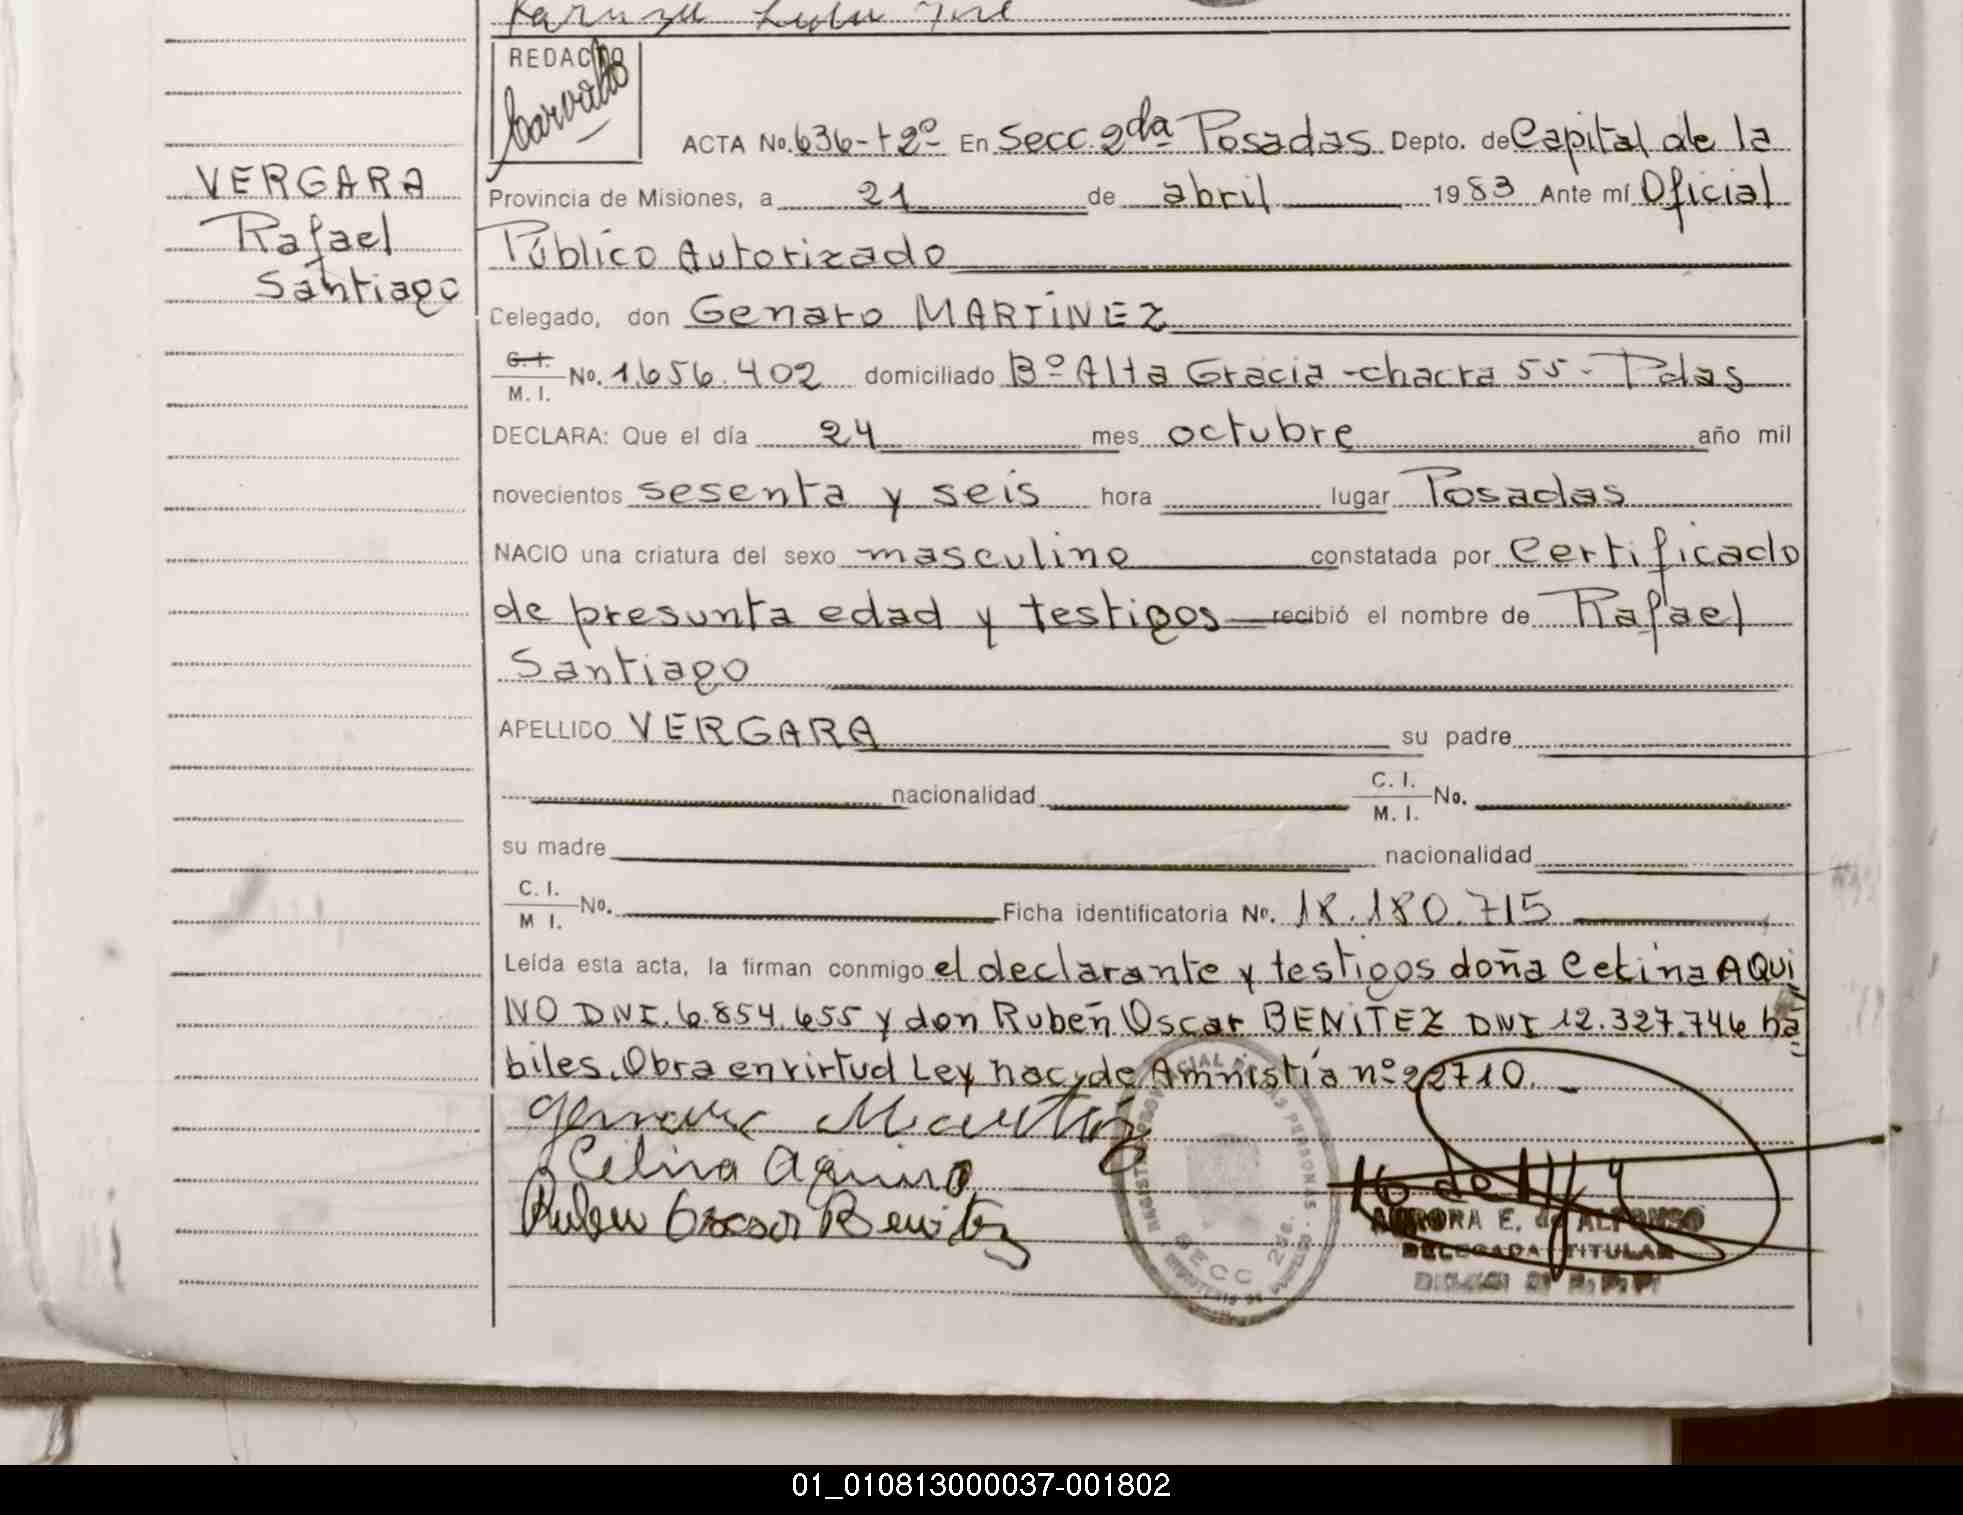 REDACTO
Carvallo
ACTA No. 636-t2º En Secc 2da Posadas Depto. de Capital de la
VERGARA
Rafael
Santiago
Provincia de Misiones, a 21 de abril 1983 Ante mí Oficial
Público Autorizado
Celegado, don Genaro MARTÍNEZ
C. I.
M. I. No. 1.656.402 domiciliado Bº Alta Gracia - chacra 55 - Pdas
DECLARA: Que el día 24 mes octubre año mil
novecientos sesenta y seis hora lugar Posadas
NACIO una criatura del sexo masculino constatada por Certificado
de presunta edad y testigos recibió el nombre de Rafael
Santiago
APELLIDO VERGARA su padre
nacionalidad C. I.
M. I. No.
su madre nacionalidad
C. I.
M I. No. Ficha identificatoria No. 18.180.715
Leída esta acta, la firman conmigo el declarante y testigos doña Celina AQUI
NO DNI. 6.854.655 y don Rubén Oscar BENITEZ DNI 12.327.746 há
biles. Obra en virtud Ley nac. de Amnistía nº 22710.
Genaro Martinez
Celina Aquino
Ruben Oscar Benitez
SECC 2da.
AURORA E. de ALFONSO
DELEGADA TITULAR
01_010813000037-001802